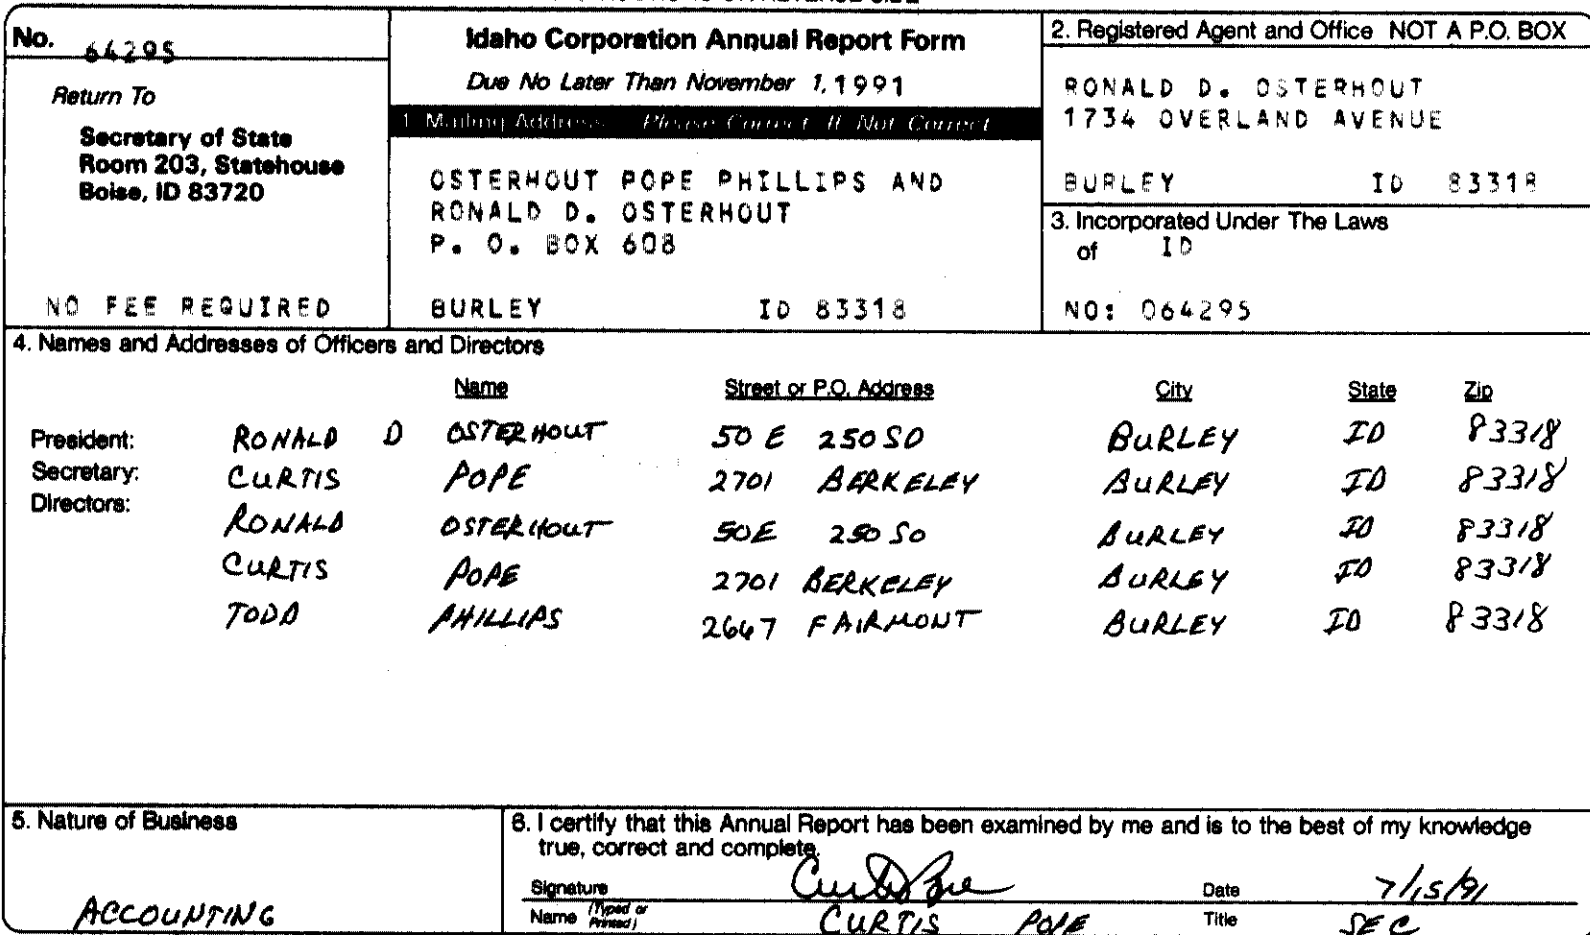 No. 64295
Return To
Secretary of State
Room 203, Statehouse
Boise, ID 83720
NO FEE REQUIRED
Idaho Corporation Annual Report Form
Due No Later Than November 1, 1991
1. Mailing Address Please Correct If Not Correct
OSTERHOUT POPE PHILLIPS AND
RONALD D. OSTERHOUT
P. O. BOX 608
BURLEY ID 83318
2. Registered Agent and Office NOT A P.O. BOX
RONALD D. OSTERHOUT
1734 OVERLAND AVENUE
BURLEY ID 83318
3. Incorporated Under The Laws
of ID
NO: 064295
4. Names and Addresses of Officers and Directors
Name Street or P.O. Address City State Zip
President: RONALD D OSTERHOUT 50 E 250 SO BURLEY ID 83318
Secretary: CURTIS POPE 2701 BERKELEY BURLEY ID 83318
Directors:
RONALD OSTERHOUT 50E 250 So BURLEY ID 83318
CURTIS POPE 2701 BERKELEY BURLEY ID 83318
TODD PHILLIPS 2667 FAIRMONT BURLEY ID 83318
5. Nature of Business
ACCOUNTING
6. I certify that this Annual Report has been examined by me and is to the best of my knowledge
true, correct and complete.
Signature Curtis Pope Date 7/15/91
Name (Typed or Printed) CURTIS POPE Title SEC